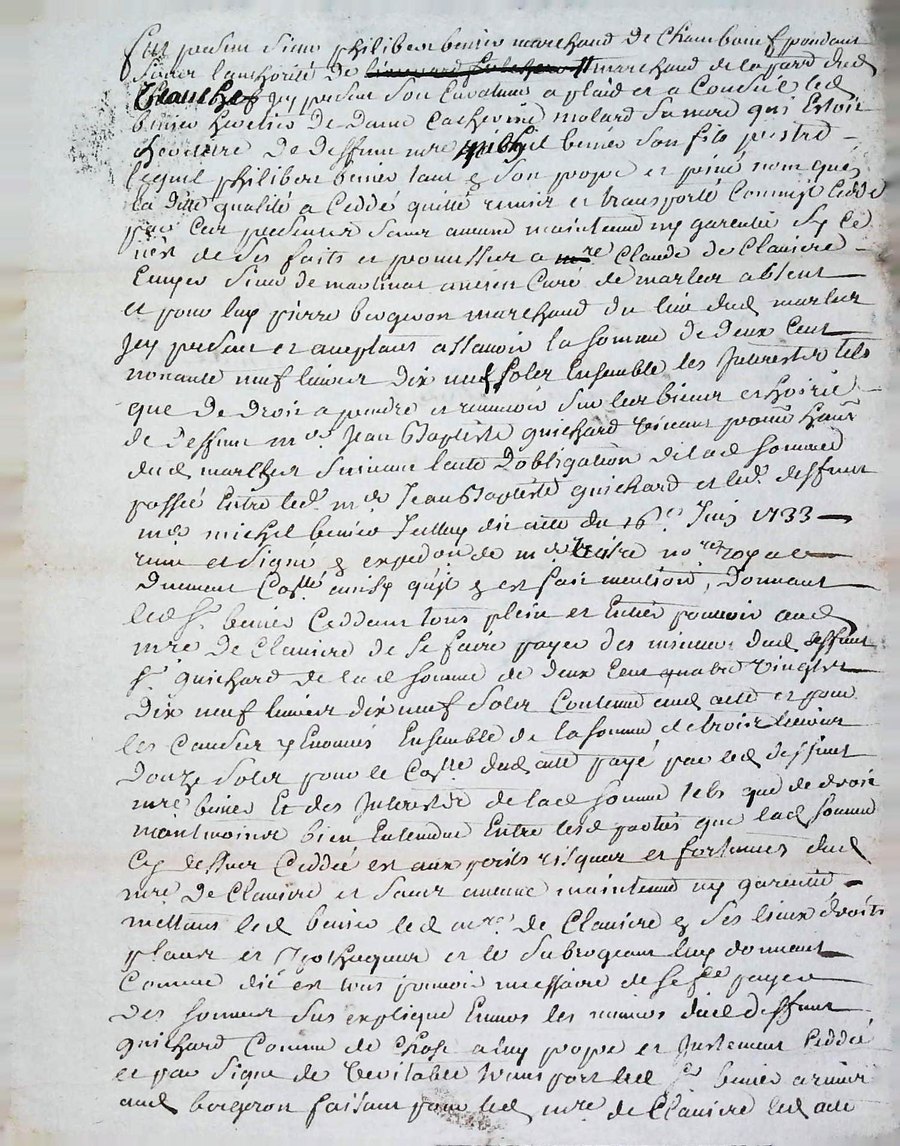 fut present sieur philibert benier marchand de Chambeuf pendant
soner lauthorité de marchand de la ded
Jcy present son a plaid et a Conseil led
benier heretier de dame Catherine molard sa mere qui Estoit
herettiere de deffunt mre michel benier son fils pretre
lequel philibert benier tant @ son propre et privé nom que
la ditte qualité a Ceddé quitté remis et transporté Comme Cedde
par Ces presentes sans aucune maintenue ny garentie sy Ce
n'est de ses faits et promesses a mre Claude de Clausire
Ecuyer sieur de martinat ancien Curé de marlier absent
et pour luy pierre bergeron marchand du lieu dud marlier
Jcy present et acceptant assavoir la somme de deux Cent
nonante neuf livres dix neuf solz Ensemble les Interestes tels
que de droit a prendre et recevoir sur les biens et hoirie
de deffunt mre Jean Baptiste guichard vivant
dud marlher suivant l'acte d'obligation de lad somme
passé Entre led mre Jean Baptiste guichard et led deffunt
mre michel benier Jcelluy dit acte du 16e Juin 1733
et signé @ expedon de mre nore royal
Duement Collé ainsy qu'il @ est fait mention, donnant
led sr benier Ceddant tous plein et Entier pouvoir aud
mre De Clausire de se faire payer des mineurs dud deffunt
sr guichard de lad somme de deux Cent quatre vingtz
dix neuf livres dix neuf solz Contenue aud acte et pour
les Causes y Enoncés Ensemble de la somme de trois livres
douze solz pour le Colle dud acte payé par led deffunt
mre benier Et des Interestz de lad somme tels que de droit
neantmoins bien Entendue Entre lesd parties que lad somme
Cy dessus Ceddée est aux perils risques et fortunes dud
mre De Clausire et sans aucune maintenue ny garentie
mettant led benier led mre De Clausire @ ses lieux droits
places et hypotheques et le subrogeant luy donnant
Comme dit est tous pouvoir necessaire de se fre payer
des sommes sus expliqué Envers les mineurs dud deffunt
guichard Comme de Chose a luy propre et Justement Ceddée
et par signe de veritable transport led sr benier a remis
aud bergeron faisant pour led mre de Clausire led acte